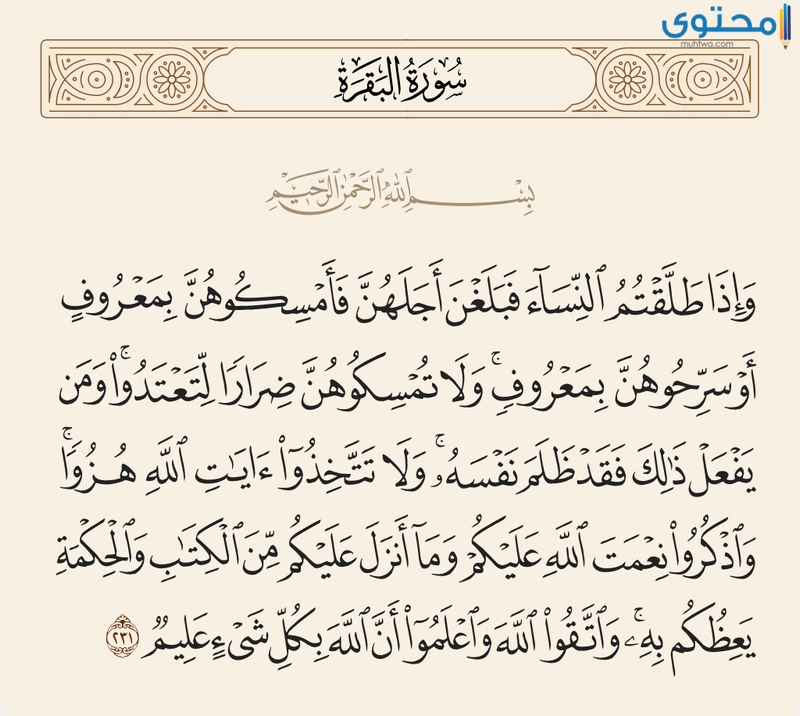 محتوى
muhtwa.com
سُورَةُ البَقَرَةِ
بِسْمِ ٱللَّهِ ٱلرَّحْمَٰنِ ٱلرَّحِيمِ
وَإِذَا طَلَّقْتُمُ ٱلنِّسَآءَ فَبَلَغْنَ أَجَلَهُنَّ فَأَمْسِكُوهُنَّ بِمَعْرُوفٍ
أَوْ سَرِّحُوهُنَّ بِمَعْرُوفٍۚ وَلَا تُمْسِكُوهُنَّ ضِرَارًا لِّتَعْتَدُوا۟ۚ وَمَن
يَفْعَلْ ذَٰلِكَ فَقَدْ ظَلَمَ نَفْسَهُۥۚ وَلَا تَتَّخِذُوٓا۟ ءَايَـٰتِ ٱللَّهِ هُزُوًاۚ
وَٱذْكُرُوا۟ نِعْمَتَ ٱللَّهِ عَلَيْكُمْ وَمَآ أَنزَلَ عَلَيْكُم مِّنَ ٱلْكِتَـٰبِ وَٱلْحِكْمَةِ
يَعِظُكُم بِهِۦۚ وَٱتَّقُوا۟ ٱللَّهَ وَٱعْلَمُوٓا۟ أَنَّ ٱللَّهَ بِكُلِّ شَىْءٍ عَلِيمٌ ٢٣١